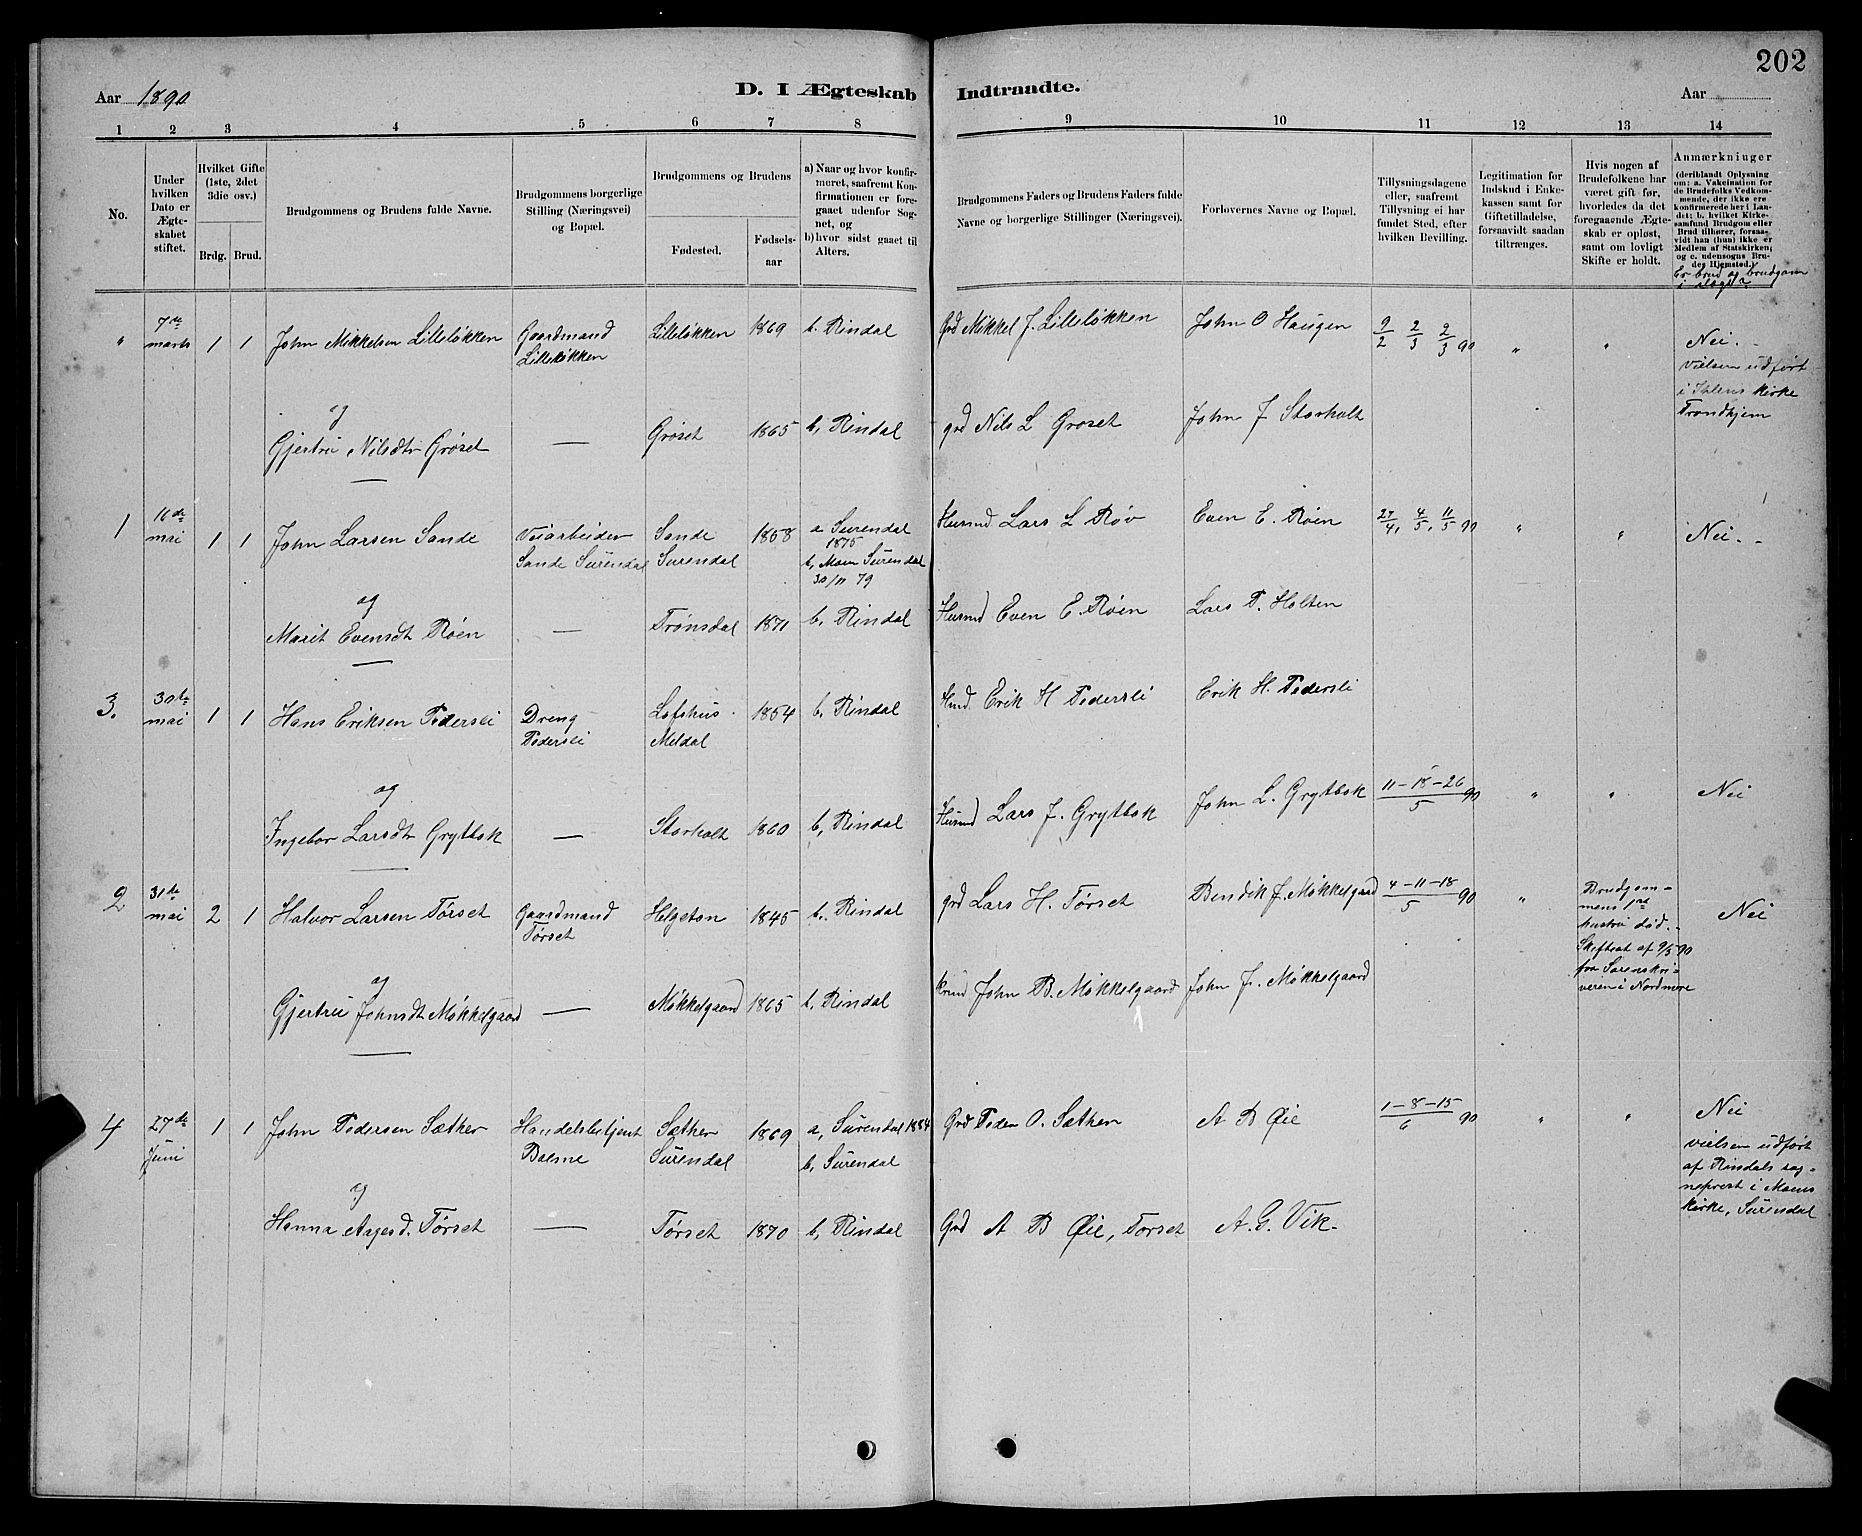 202
Aar 1890 D. I Ægteskab Indtraadte. Aar
1 2 3 4 5 6 7 8 9 10 11 12 13 14
No.
Under hvilken Dato er Ægteskabet stiftet.
Hvilket Gifte (1ste, 2det 3die osv.)
Brdg. Brud.
Brudgommens og Brudens fulde Navne.
Brudgommens borgerlige Stilling (Næringsvei) og Bopæl.
Brudgommens og Brudens
Fødested. Fødselsaar
a) Naar og hvor konfirmeret, saafremt Konfirmationen er foregaaet udenfor Sognet, og
b) hvor sidst gaaet til Alters.
Brudgommens Faders og Brudens Faders fulde Navne og borgerlige Stillinger (Næringsvei).
Forlovernes Navne og Bopæl.
Tillysningsdagene eller, saafremt Tillysning ei har fundet Sted, efter hvilken Bevilling.
Legitimation for Indskud i Enkekassen samt for Giftetilladelse, forsaavidt saadan tiltrænges.
Hvis nogen af Brudefolkene har været gift før, hvorledes da det foregaaende Ægteskab er opløst, samt om lovligt Skifte er holdt.
Anmærkninger
(deriblandt Oplysning om: a. Vakcination for de Brudefolks Vedkommende, der ikke ere konfirmerede her i Landet; b. hvilket Kirkesamfund Brudgom eller Brud tilhører, forsaavidt han (hun) ikke er Medlem af Statskirken, og c. udensogns Brudes Hjemsted.)
Er brud og brudgom i slægt?
" 7de marts 1 1 John Mikkelsen Lilleløkken Gaardmand Lilleløkken Lilleløkken 1869 b. Rindal Grd Mikkel J. Lilleløkken John O Haugen 9/2 2/3 2/3 90 " " Nei. -
vielsen udført i Ihlens kirke Trondhjem
og
Gjertru Nilsdtr Grøset — Grøset 1865 b, Rindal grd Nils L Grøset John J Storholt
1 16de mai 1 1 John Larsen Sande Veiarbeider Sande Surendal Sande Surendal 1858 a Surendal 1875 b, Moen Surendal 30/11 79 Husmd Lars L Røv Even E. Røen 27/4, 4/5, 11/5 90 " " Nei. -
og
Marit Evensdt Røen — Trønsdal 1871 b, Rindal Husmd Even E. Røen Lars P. Holten
3. 30te mai 1 1 Hans Eriksen Pedersli Dreng Pedersli Lofshus Meldal 1854 b, Rindal Hmd. Erik H Pedersli Erik H. Pedersli
og
Ingebor Larsdtr Grytbak — Storholt 1860 b, Rindal Husmd Lars J. Grytbak John L. Grytbak 11-18-26/5 90 " " Nei
2 31te mai 2 1 Halvor Larsen Tørset Gaardmand Tørset Helgeton 1845 b. Rindal grd Lars H. Tørset Bendik J. Møkkelgaard 4-11-18/5 90 " Brudgommens 1ste hustru død. - Skifteat af 9/5 90 fra Sorenskriveren i Nordmøre Nei
og
Gjertru Johnsdt Møkkelgaard — Møkkelgaard 1865 b. Rindal John B. Møkkelgaard John J. Møkkelgaard
4 27de Juni 1 1 John Pedersen Sæther Handelsbetjent Bæsne Sæther Surendal 1869 a, Surendal 1884 b, Surendal Grd Peder O. Sæther A B Øie 1-8-15/6 90 " " Nei
vielsen udført af Rindals sogneprest i Moens kirke, Surendal
og
Hanna Aagesd. Tørset — Tørset 1870 b, Rindal Grd A B Øie, Tørset A. G. Vik-